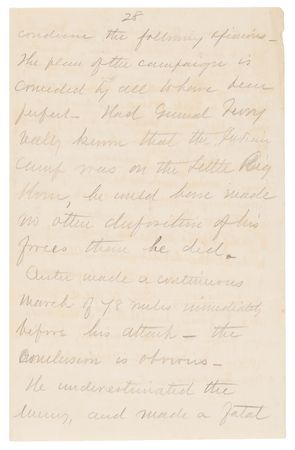 28
condense the following opinions—
The plan of the campaign is
conceded by all to have been
perfect— Had General Terry
really known that the Indian
Camp was on the Little Big
Horn, he could have made
no other disposition of his
forces than he did.
Custer made a continuous
march of 78 miles immediately
before his attack — the
conclusion is obvious—
He underestimated the
enemy, and made a fatal